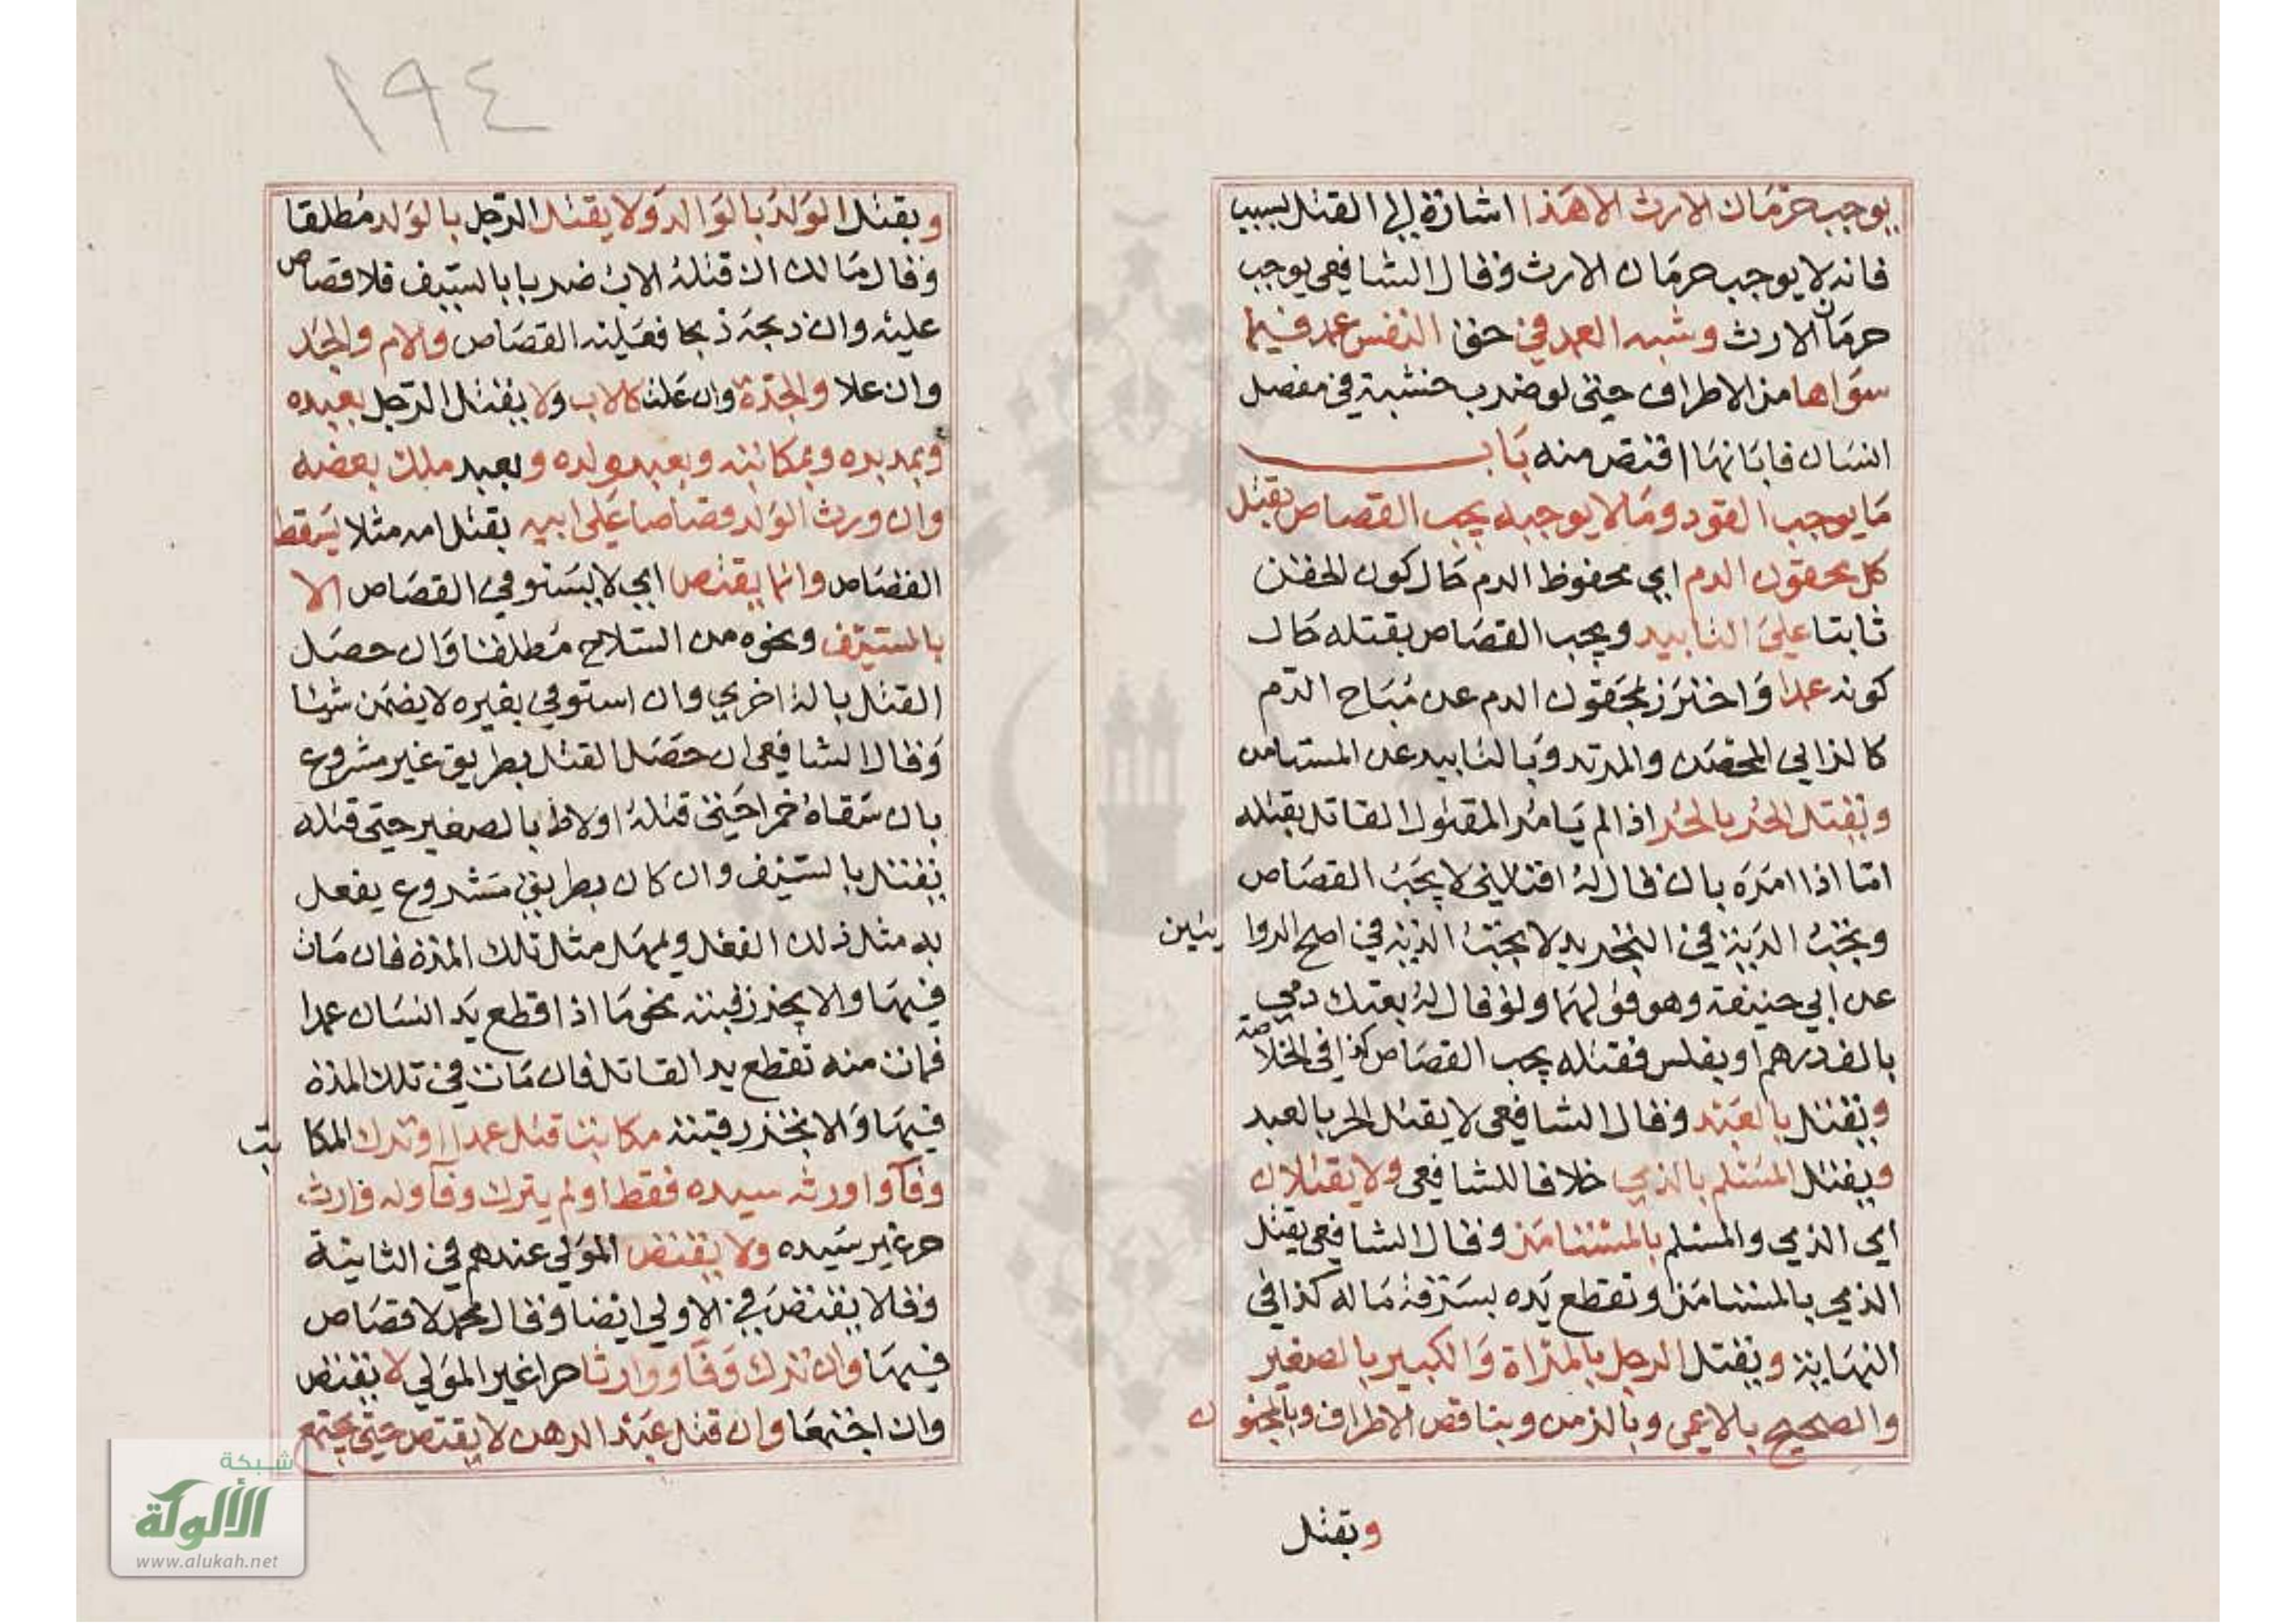 يوجب حرمان الارث الا هذا اشارة الى القتل بسبب
فانه لا يوجب حرمان الارث وقال الشافعي يوجب
حرمان الارث وشبه العمد في حق النفس عمد فيما
سواها من الاطراف حتى لو ضرب خشبة في مفصل
انسان فابانها اقتص منه باب
ما يوجب القود وما لا يوجبه يجب القصاص بقتل
كل محقون الدم اي محفوظ الدم حال كون الحقن
ثابتا على التابيد ويجب القصاص بقتله حال
كونه عمدا واحترز بمحقون الدم عن مباح الدم
كالزاني المحصن والمرتد وبالتابيد عن المستامن
ويقتل الحر بالحر اذا لم يامر المقتول القاتل بقتله
اما اذا امره بان قال له اقتلني لا يجب القصاص
وتجب الدية في التجريد لا تجب الدية في اصح الروايتين
عن ابي حنيفة وهو قولهما ولو قال له بعتك دمي
بالف درهم او بفلس فقتله يجب القصاص كذا في الخلاصة
ويقتل بالعبد وقال الشافعي لا يقتل الحر بالعبد
ويقتل المسلم بالذمي خلافا للشافعي ولا يقتلان
اي الذمي والمسلم بالمستامن وقال الشافعي يقتل
الذمي بالمستامن وتقطع يده بسرقة ماله كذا في
النهاية ويقتل الرجل بالمراة والكبير بالصغير
والصحيح بالاعمى وبالزمن وبناقص الاطراف وبالمجنون
ويقتل
١٩٤
ويقتل الولد بالوالد ولا يقتل الرجل بالولد مطلقا
وقال مالك ان قتله الاب ضربا بالسيف فلا قصاص
عليه وان ذبحه ذبحا فعليه القصاص والام والجد
وان علا والجدة وان علت كالاب ولا يقتل الرجل بعبده
وبمدبره وبمكاتبه وبعبد ولده وبعبد ملك بعضه
وان ورث الولد قصاصا على ابيه بقتل امه مثلا يسقط
القصاص وانما يقتص اي لا يستوفي القصاص الا
بالسيف ونحوه من السلاح مطلقا وان حصل
القتل بالة اخرى وان استوفي بغيره لا يضمن شيئا
وقال الشافعي ان حصل القتل بطريق غير مشروع
بان سقاه خمرا حتى قتله او لاط بالصغير حتى قتله
يقتل بالسيف وان كان بطريق مشروع يفعل
به مثل ذلك الفعل ويمهل مثل تلك المدة فان مات
فيها والا يحز رقبته نحو ما اذا قطع يد انسان عمدا
فمات منه تقطع يد القاتل فان مات في تلك المدة
فيها والا تحز رقبته مكاتبا قتل عمدا وترك المكاتب
وفآ وارثه سيده فقط او لم يترك وفآ وله وارث
حر غير سيده ولا يقتص المولي عندهم في الثانية
وقالا يقتص في الاولي ايضا وقال محمد لا قصاص
فيها وان ترك وفآ ووارثا حرا غير المولي لا يقتص
وان اجتمعا وان قتل عبد الرهن لا يقتص حتى يجتمع
شبكة
الألوكة
www.alukah.net